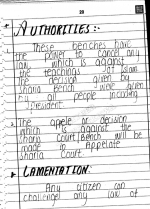 28
AUTHORITIES:-
These benches have
the power to cancel any
law which is against
the teachings of Islam
the decision given by
sharia bench were given
by all people including
President.
2. The apele or decision
which is against the
sharia court/bench will be
made in Appelate
sharia court.
LAMENTATION:
Any citizen can
challenge any law of